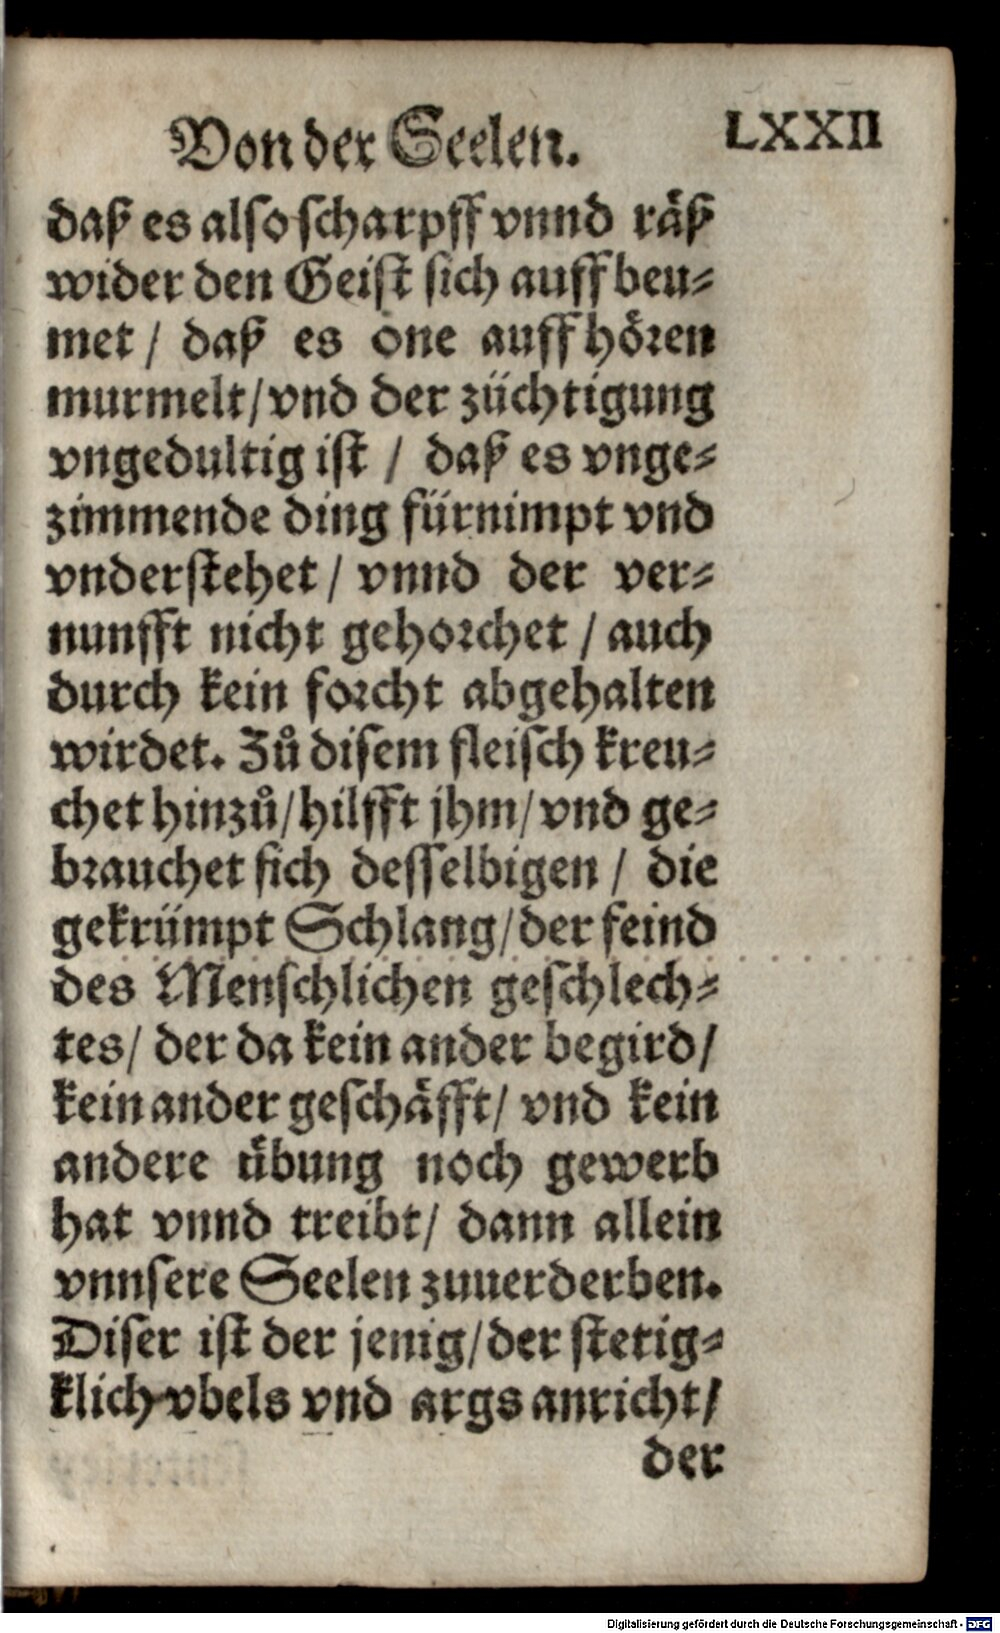 Von der Seelen. LXXII
daß es also scharpff vnnd räß
wider den Geist sich auffbeu-
met / daß es one auffhören
murmelt/vnd der züchtigung
vngedultig ist / daß es vnge-
zimmende ding fürnimpt vnd
vnderstehet / vnnd der ver-
nunfft nicht gehorchet / auch
durch kein forcht abgehalten
wirdet. Zů disem fleisch kreu-
chet hinzů/hilfft jhm/vnd ge-
brauchet sich desselbigen / die
gekrümpt Schlang/der feind
des Menschlichen geschlech-
tes/ der da kein ander begird/
kein ander geschäfft/ vnd kein
andere übung noch gewerb
hat vnnd treibt/ dann allein
vnnsere Seelen zuuerderben.
Diser ist der jenig/der stetig-
klich vbels vnd args anricht/
der
Digitalisierung gefördert durch die Deutsche Forschungsgemeinschaft - DFG